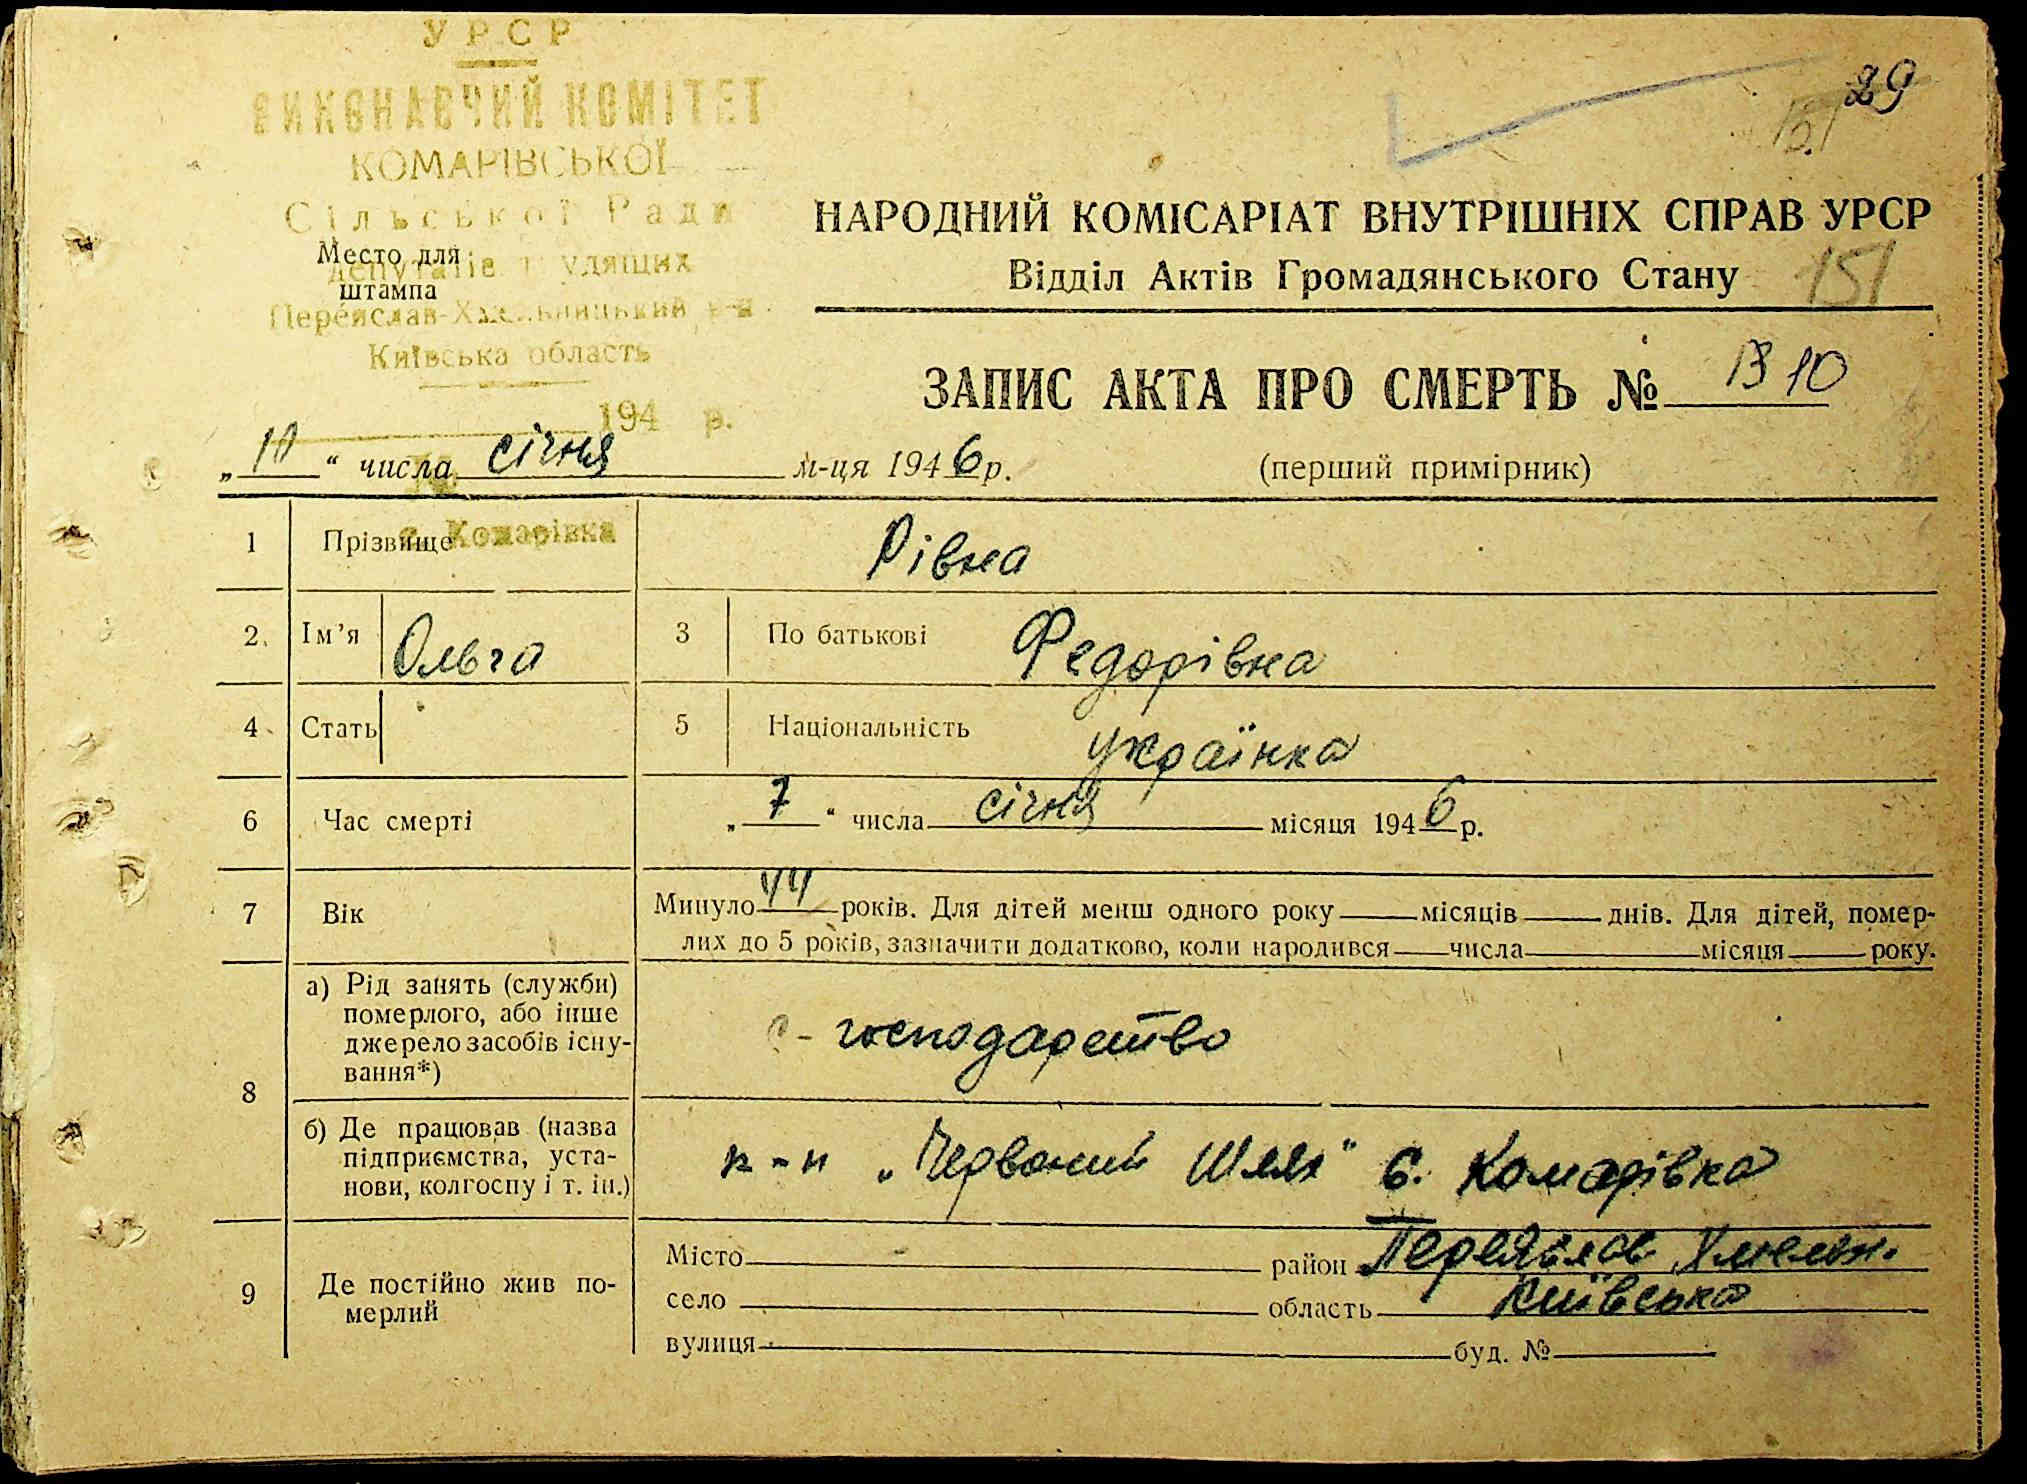 УРСР
ВИКОНАВЧИЙ КОМІТЕТ
КОМАРІВСЬКОЇ
Сільської Ради
депутатів трудящих
Переяслав-Хмельницький р-н
Київська область
194 р.
с. Комарівка
Место для
штампа
29
151
НАРОДНИЙ КОМІСАРІАТ ВНУТРІШНІХ СПРАВ УРСР
Відділ Актів Громадянського Стану
151
ЗАПИС АКТА ПРО СМЕРТЬ № 10
„10“ числа січня м-ця 1946р.
(перший примірник)
1 Прізвище Рівна
2 Ім’я Ольга 3 По батькові Федорівна
4 Стать 5 Національність українка
6 Час смерті „7“ числа січня місяця 1946 р.
7 Вік Минуло 44 років. Для дітей менш одного року місяців днів. Для дітей, помер-
лих до 5 років, зазначити додатково, коли народився числа місяця року.
8 а) Рід занять (служби)
померлого, або інше
джерело засобів існу-
вання*)
с-господарство
б) Де працював (назва
підприємства, уста-
нови, колгоспу і т. ін.)
„Червоний Шлях“ с. Комарівка
9 Де постійно жив по-
мерлий
Місто район Переяслав Хмельн.
село область Київська
вулиця буд. №